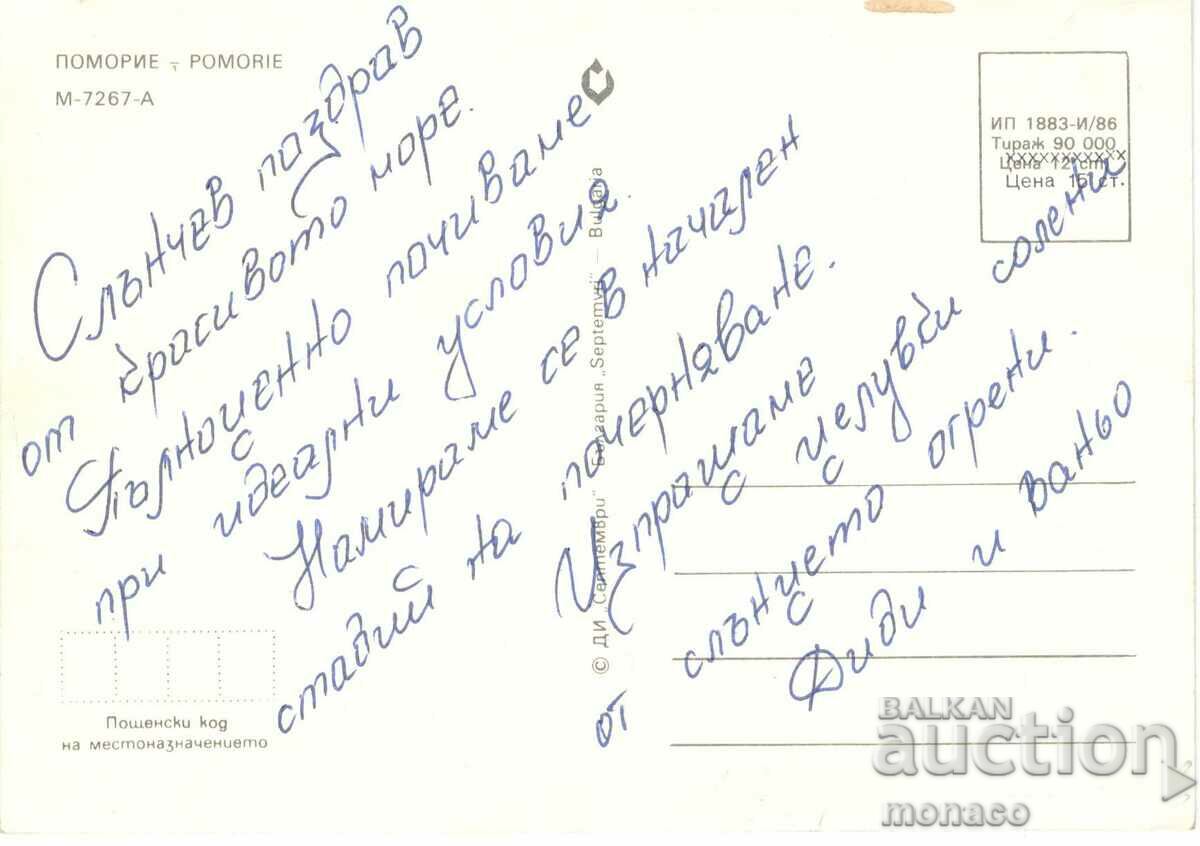 ПОМОРИЕ - POMORIE
М-7267-А
Слънчев поздрав
от красивото море.
Пълноценно почиваме
при идеални условия.
Намираме се в начален
стадий на почерняване.
Изпращаме целувки солени
от слънцето огрени.
Диди и Ваньо
ИП 1883-И/86
Тираж 90 000
Цена 12 ст.
Цена 15 ст.
© ДИ „Септември" България „Septemvri" — Bulgaria
Пощенски код
на местоназначението
BALKAN
auction
monaco